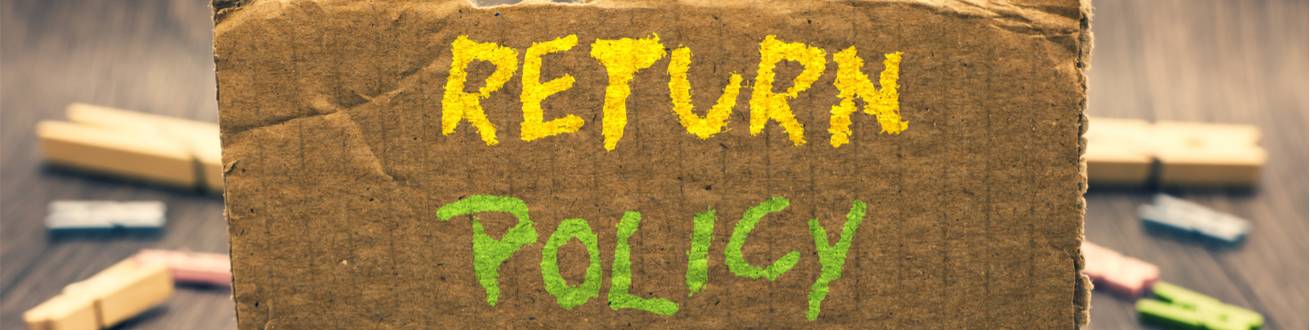 RETURN
POLICY